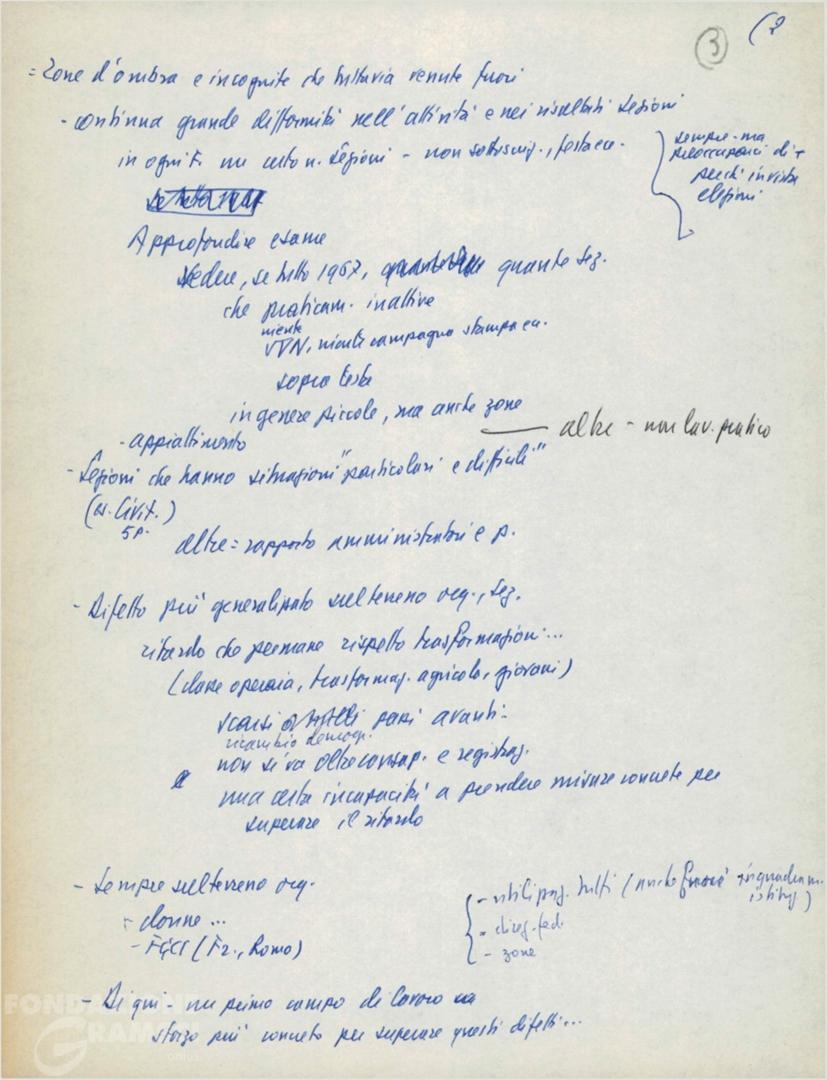 3
= Zone d'ombra e incognite che tuttavia venute fuori
- continua grande difformità nell'attività e nei risultati sezioni
in ogni F. un certo n. sezioni - non sottosvig.,
sempre - ma
preoccuparci di +
perché in vista
elezioni
Approfondire esame
Vedere, se tutto 1967, quante sez.
che praticam. inattive
niente
, niente campagna stampa ecc.
sopra testa
in genere piccole, ma anche zone
altre - non lav. pratico
- appiattimento
- Sezioni che hanno situazioni "particolari e difficili"
(es. Civit.)
5 p.
altre = rapporto amministratori e p.
- Difetto più generalizzato sul terreno org., sez.
ritardo che permane rispetto trasformazioni...
(classe operaia, trasformaz. agricola, giovani)
scarsi passi avanti:
ricambio demogr.
non si va oltre consap. e registraz.
una certa incapacità a prendere misure concrete per
superare il ritardo
- Sempre sul terreno org.
- donne...
- FGCI (Fr., Roma)
- utilizzaz. tutti (anche fuori inquadram.
istituz)
- direz. fed.
- zone
- Di qui - un primo campo di lavoro
sforzo più concreto per superare questi difetti...
FONDAZIONE
GRAMSCI